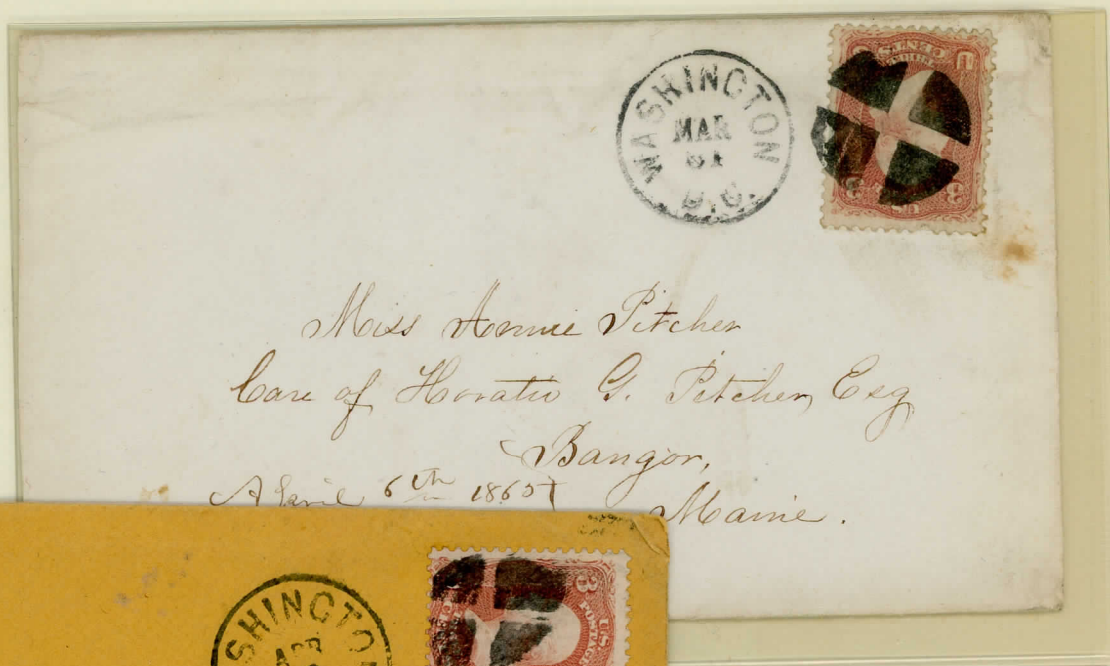 WASHINGTON
MAR
31
D.C.
U CENTS
3 U.S. 3
Miss Annie Pitcher
Care of Horatio G. Pitcher, Esq
Bangor,
April 6th 1865
Maine.
SHINGTO
APR
3
U.S.
POSTAGE